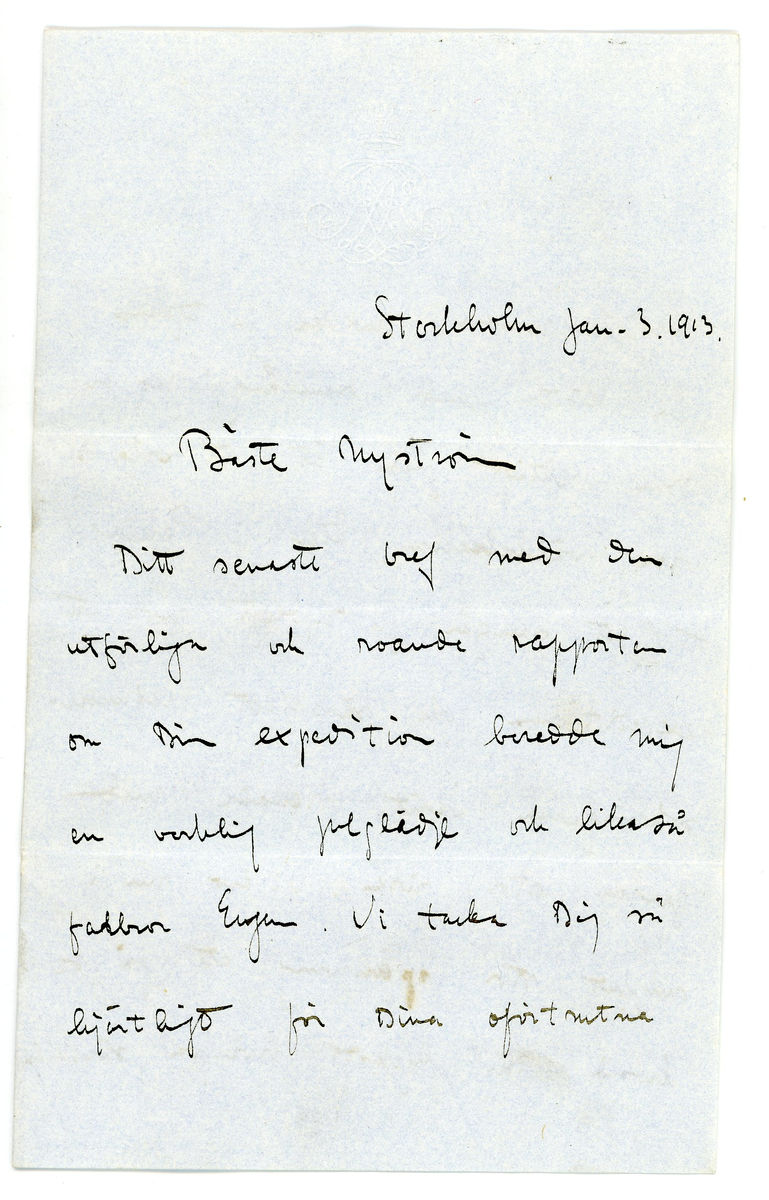 Stockholm Jan. 3. 1913.
Bäste Nyström
Ditt senaste bref med den
utförliga och roande rapporten
om Din expedition beredde mig
en verklig julglädje och likaså
farbror Eugen. Vi tacka Dig så
hjärtligt för Dina oförtrutna